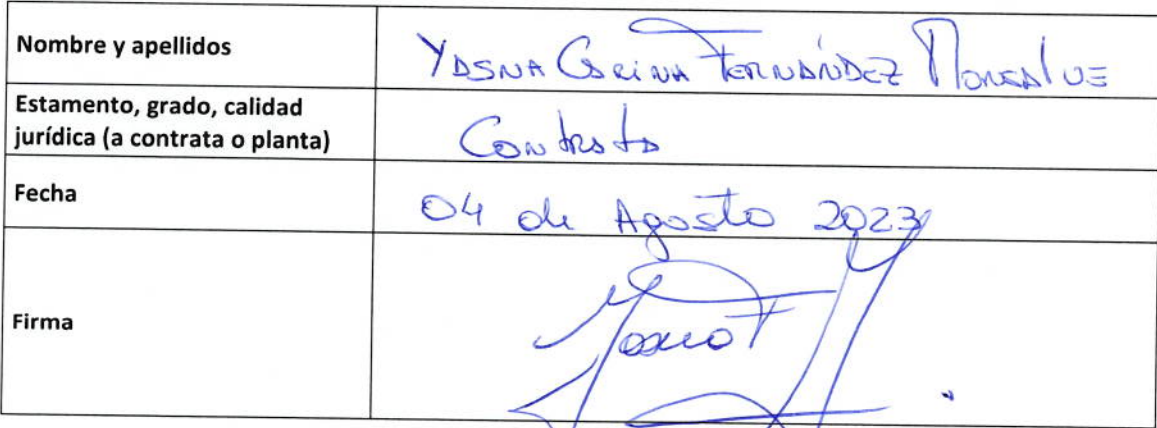 Nombre y apellidos
Yasna Carina Fernández Monsalve
Estamento, grado, calidad
jurídica (a contrata o planta)
Contrata
Fecha
04 de Agosto 2023
Firma